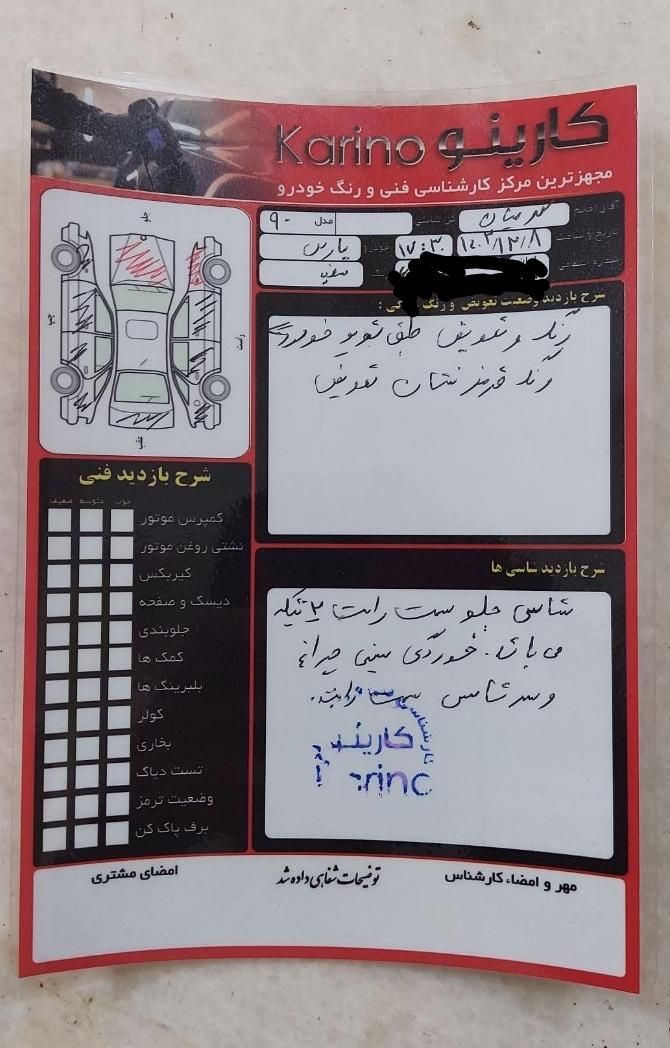 Karino کارینو
مجهزترین مرکز کارشناسی فنی و رنگ خودرو
آقای/خانم
مدل ۹۰
تاریخ و ساعت ۱۴۰۲/۱۲/۸ ۱۷:۳۰ خودرو پارس
سفید
شرح بازدید وضعیت تعویض و رنگ
رنگ و تعویض طبق تصویر خودرو
رنگ قرمز نشان تعویض
جلو
راست
چپ
عقب
شرح بازدید فنی
خوب متوسط ضعیف
کمپرس موتور
نشتی روغن موتور
گیربکس
دیسک و صفحه
جلوبندی
کمک ها
بلبرینگ ها
کولر
بخاری
تست دیاک
وضعیت ترمز
برف پاک کن
شرح بازدید شاسی ها
شاسی جلو سمت راست ۲ تیکه
می باشد. خوردگی سینی چراغ
و سر شاسی سمت راست.
کارشناسی
کارینو
rino
مهر و امضاء کارشناس
توضیحات شفاهی داده شد
امضای مشتری